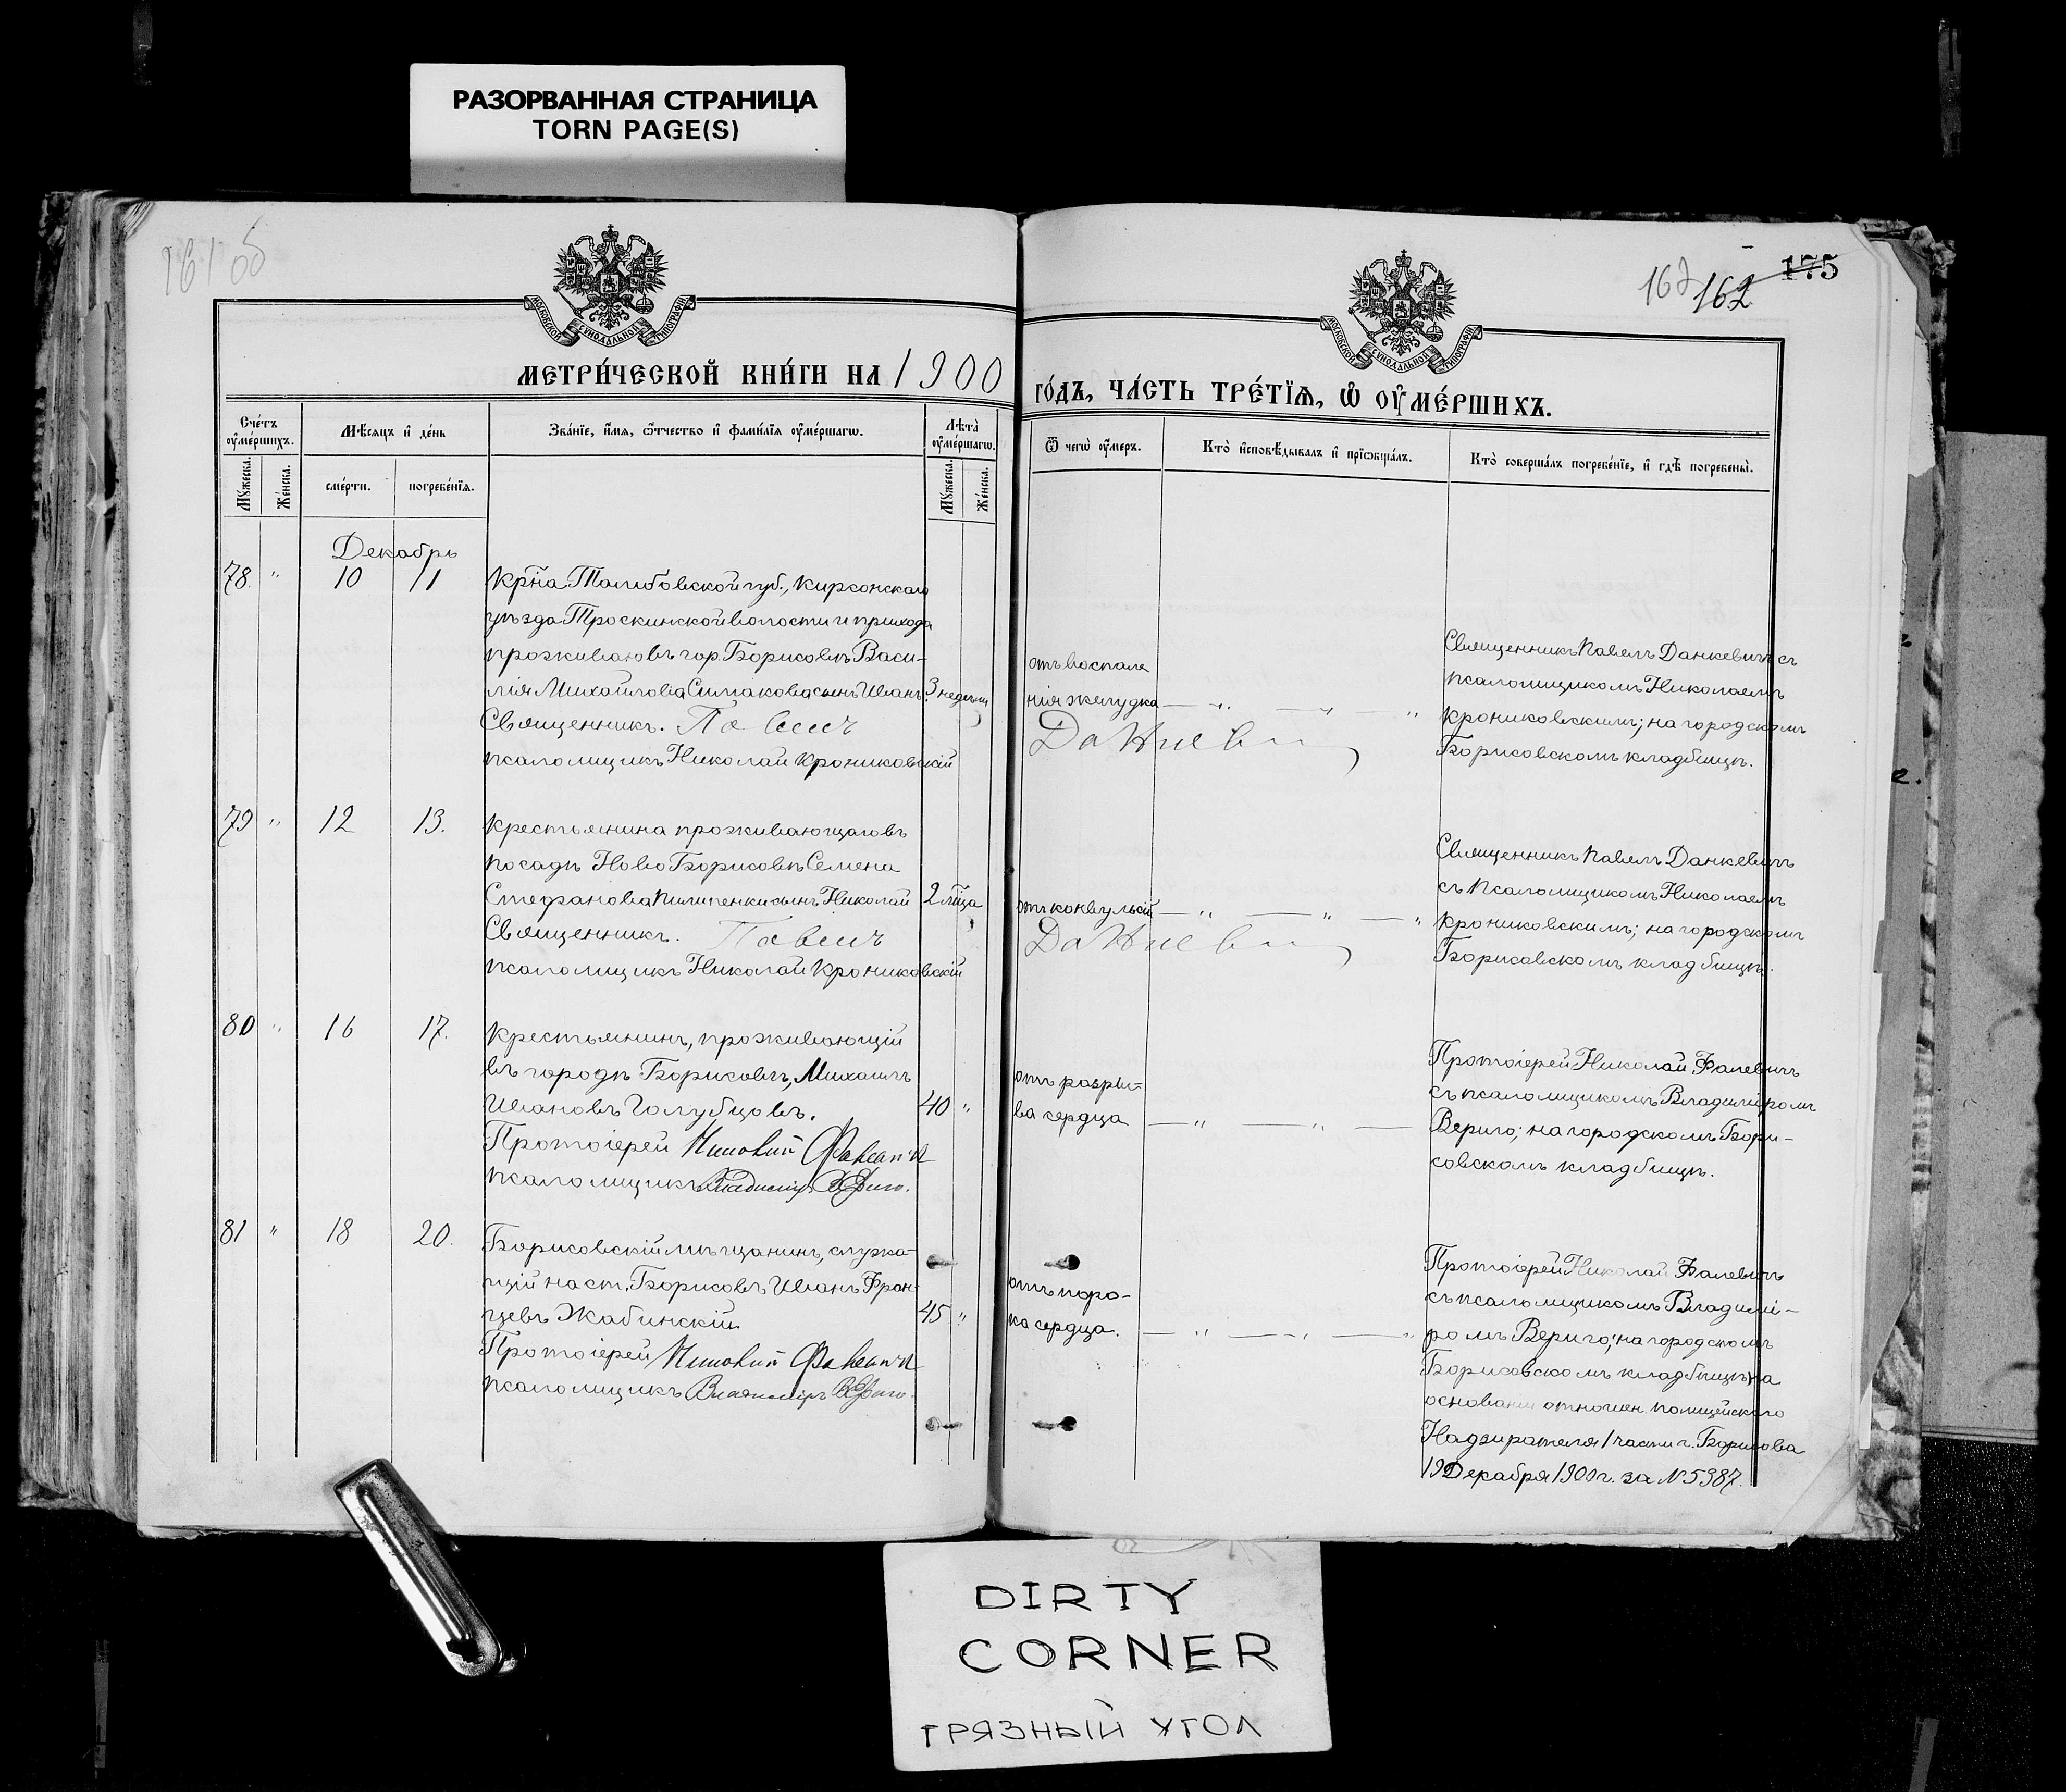 РАЗОРВАННАЯ СТРАНИЦА
TORN PAGE(S)
161 об
162 162 175
МОСКОВСКОЙ СѴНОДАЛЬНОЙ ТИПОГРАФІИ
МОСКОВСКОЙ СѴНОДАЛЬНОЙ ТИПОГРАФІИ
МЕТРИ́ЧЕСКОЙ КНИ́ГИ НА 1900
ГО́ДЪ, ЧА́СТЬ ТРЕ́ТЇѦ, Ѽ ОУ҆МЕ́РШИХЪ.
Сче́тъ оу҆ме́ршихъ.
Мѣсяцъ и҆ де́нь
Зва́нїе, и҆́мя, ѻ҆́тчество и҆ фами́лїя оу҆ме́ршагѡ.
Лѣ́та оу҆ме́ршагѡ.
Ѿ чегѡ̀ оу҆́меръ.
Кто̀ и҆сповѣ́дывалъ и҆ прїѡбща́лъ.
Кто̀ соверша́лъ погребе́нїе, и҆ гдѣ̀ погребены̀.
Мꙋ́жеска.
Же́нска.
сме́рти.
погребе́нїя.
Мꙋ́жеска.
Же́нска.
Декабрь
78. " 10 11
Крна Тамбовской губ., Кирсонскаго
уѣзда Троскинской волости и прихода
прожив. въ гор. Борисовѣ Васи-
лія Михайлова Симакова сынъ Иванъ
Священникъ. Павелъ
Псаломщикъ Николай Крониковскій
3 недѣли
отъ воспале
нія желудка
Данкевичъ
Священникъ Павелъ Данкевичъ съ
псаломщикомъ Николаемъ
Крониковскимъ; на городскомъ
Борисовскомъ кладбищѣ.
79 " 12 13.
Крестьянина проживающаго въ
посадѣ Ново Борисовѣ Семена
Стефанова Пилипенки сынъ Николай
Священникъ. Павелъ
Псаломщикъ Николай Крониковскій
2 мца
отъ конвульсій
Данкевичъ
Священникъ Павелъ Данкевичъ
съ псаломщикомъ Николаемъ
Крониковскимъ; на городскомъ
Борисовскомъ кладбищѣ.
80 " 16 17.
Крестьянинъ, проживающій
въ городѣ Борисовѣ, Михаилъ
Ивановъ Голубцовъ.
Протоіерей Николай Фалевичъ
Псаломщикъ Владиміръ Вериго.
40 "
отъ разры-
ва сердца
Протоіерей Николай Фалевичъ
съ псаломщикомъ Владиміромъ
Вериго; на городскомъ Бори-
совскомъ кладбищѣ.
81 " 18 20.
Борисовскій мѣщанинъ, служа-
щій на ст. Борисовъ Иванъ Фран-
цевъ Жабинскій
Протоіерей Николай Фалевичъ
Псаломщикъ Владиміръ Вериго.
45 "
отъ поро-
ка сердца.
Протоіерей Николай Фалевичъ
съ псаломщикомъ Владимі-
ромъ Вериго; на городскомъ
Борисовскомъ кладбищѣ на
основаніи отношен. полицейскаго
Надзирателя 1 части г. Борисова
19 Декабря 1900 г. за № 5387.
DIRTY
CORNER
ГРЯЗНЫЙ УГОЛ